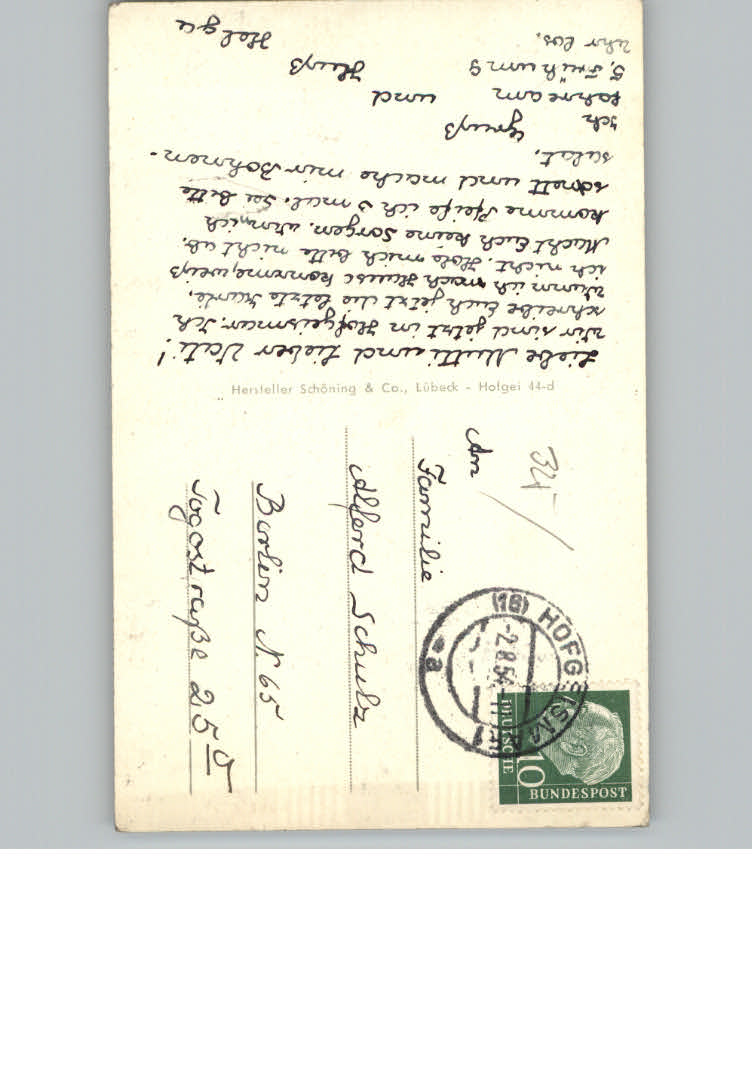 Liebe Mutti und Lieber Vati!
Wir sind jetzt in Hofgeismar. Ich
schreibe Euch jetzt die letzte Karte,
Wann ich nach Hause komme, weiß
ich nicht. Hole mich bitte nicht ab.
Macht Euch keine Sorgen. Wenn ich
komme Pfeife ich 3 mal. bitte
schnell und mache mir Bohnen-
salat.
Gruß
und
Kuß
Helga
Ich
fahre am
5, Früh um 9
Uhr los.
Hersteller Schöning & Co., Lübeck - Hofgei 44-d
325
An
Familie
Alferd Schulz
Berlin N. 65
Togostraße 25 D
(16) HOFGEISMAR 1
-2.8.54
a
DEUTSCHE
BUNDESPOST
10